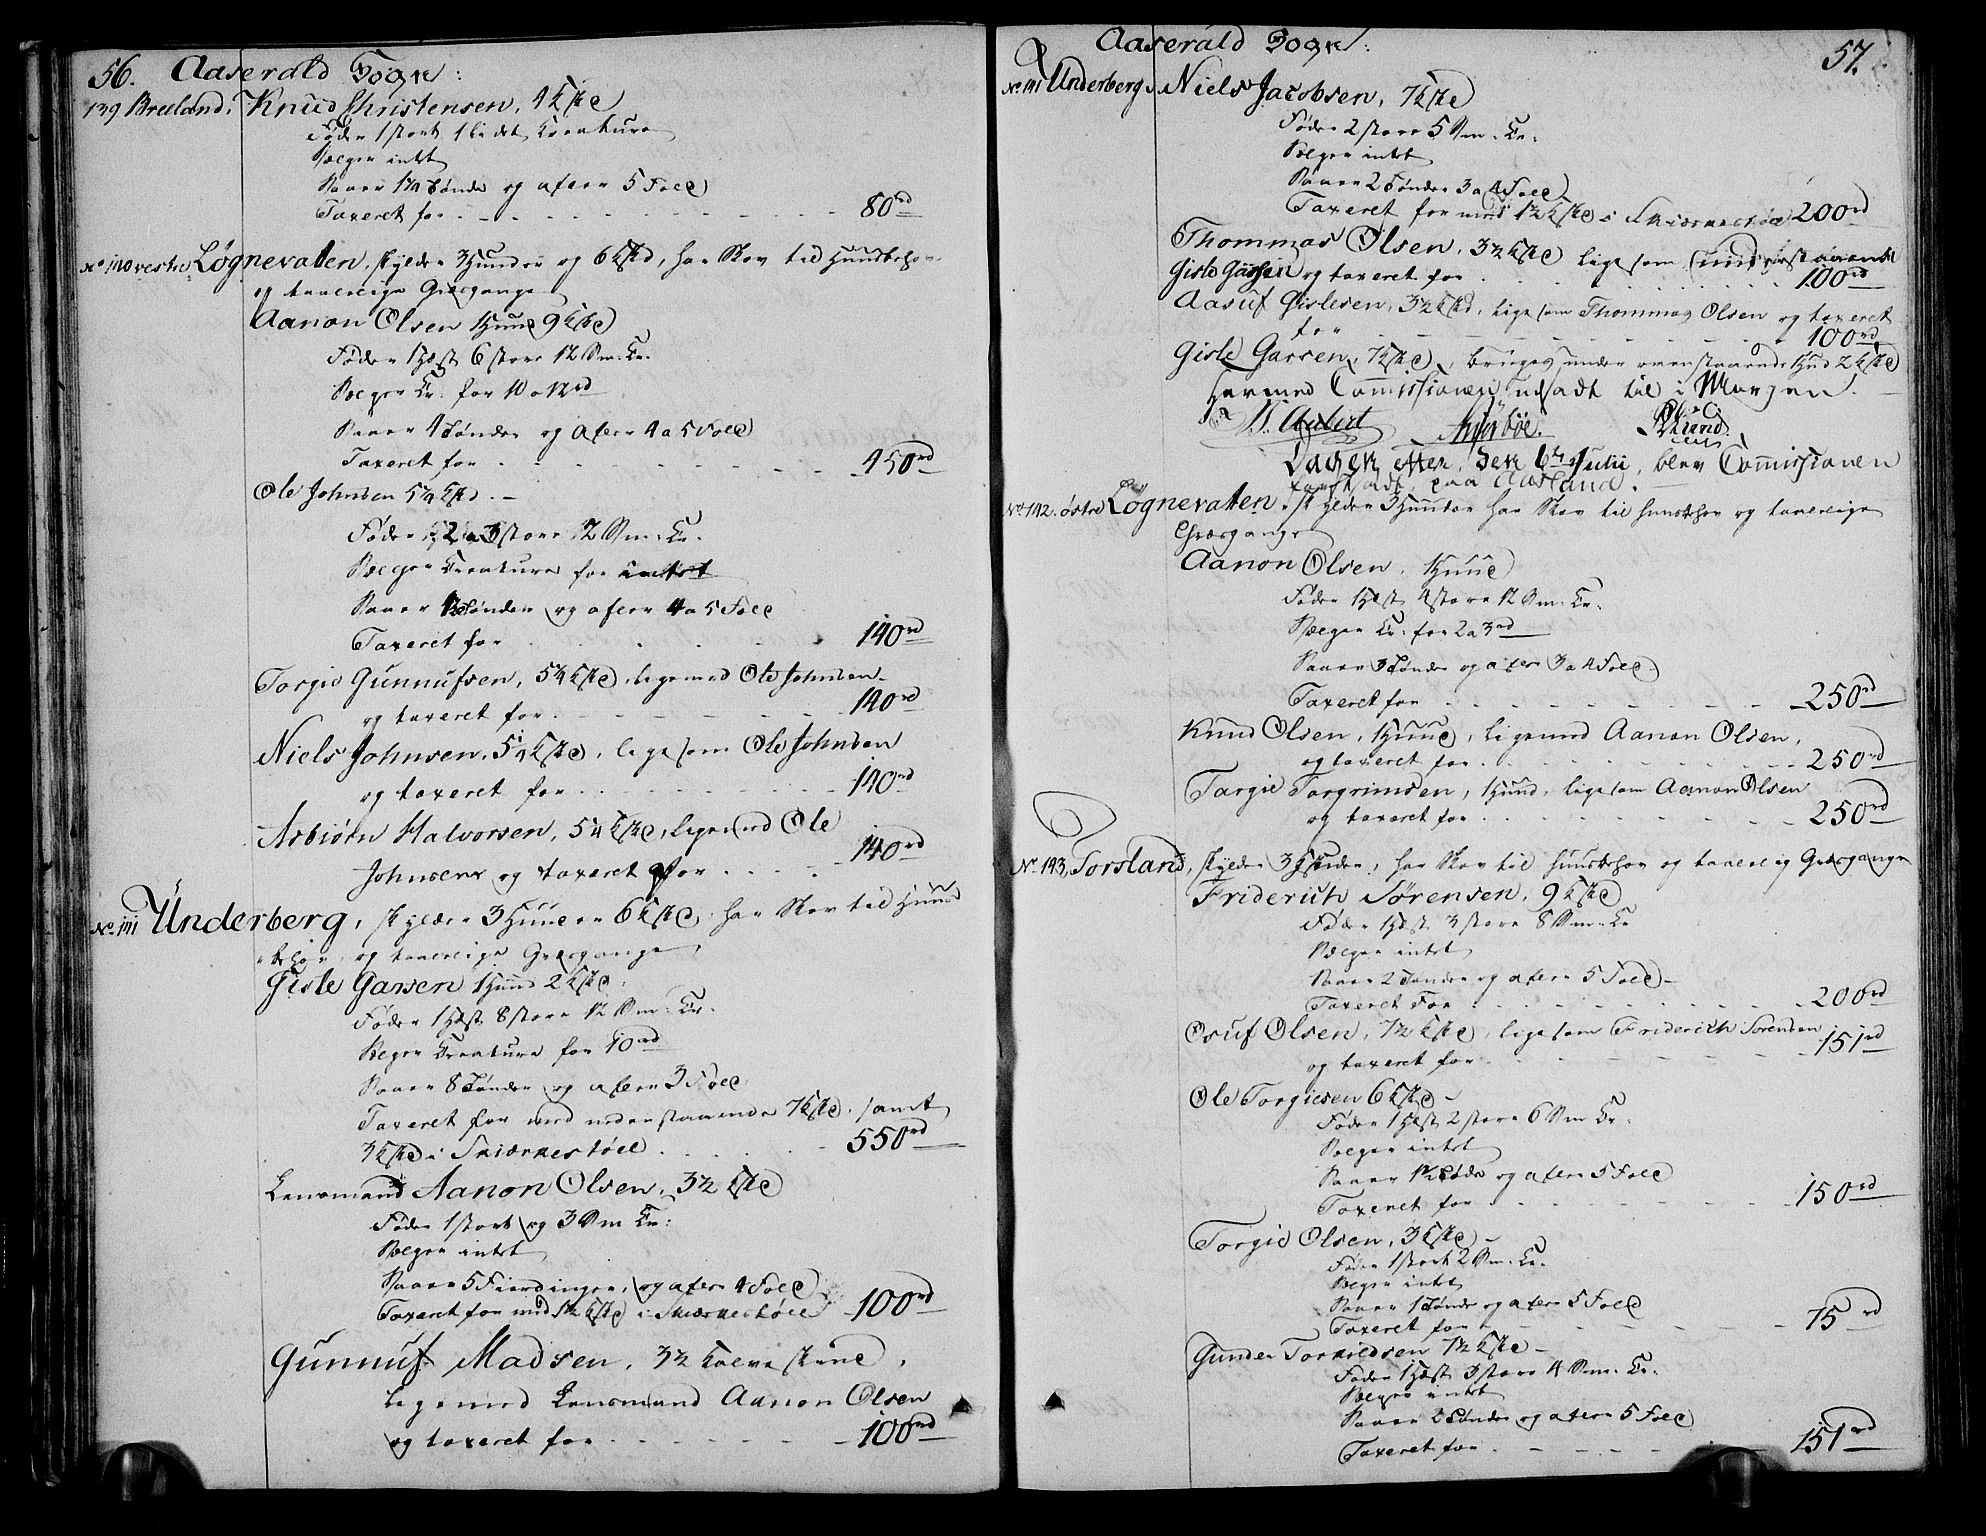 56. Aaserald Sogn:
139 Breeland. Knud Christensen, 4 K/sk
Føder 1 stort 1 lidet Creature
Sælger intet
Saaer 1¼ Tønde og afler 5 Fold
Taxeret for 80 rd
No 140 vestre Løgnevaten, skylder 3 Huuder og 6 K/sk, har Skov til Huusbehov
og taalelige Græsgange
Aanon Olsen 1 Huud 9 K/sk
Føder 1 Hæst 6 store 12 Sm. Cr.
Sælger Cr. for 10 a 12 rd
Saaer 4 Tønder og afler 4 a 5 Fold
Taxeret for 450 rd
Ole Johnsen 5¼ K/sk
Føder 2 a 3 store 12 Sm. Cr.
Sælger Creature for intet
Saaer Tønder og afler 4 a 5 Fold
Taxeret for 140 rd
Torgie Gunnufsen, 5¼ K/sk, ligemed Ole Johnsen
og taxeret for 140 rd
Niels Johnsen, 5¼ K/sk, lige som Ole Johnsen
og taxeret for 140 rd
Asbiørn Halvorsen, 5¼ K/sk, ligemed Ole
Johnsen og taxeret for 140 rd
No 141 Underberg, skylder 3 Huuder 6 K/sk, har Skov til Huus
behov, og taalelige Græsgange
Gisle Garsen 1 Huud 2 K/sk
Føder 1 Hæst 8 store 12 Sm. Cr.
Sælger Creature for 10 rd
Saaer 8 Tønder og afler 3 Fold
Taxeret for med nedenstaaende 7 K/sk samt
3 K/sk i Skiærkestøel 550 rd
Lensmand Aanon Olsen, 3½ K/sk
Føder 1 stort og 3 Sm Cr:
Sælger intet
Saaer 5 Fierdinger, og afler 4 Fold
Taxeret for med 1½ K/sk i Skiærkestøel 100 rd
Gunnuf Madsen, 3½ Kalveskind,
ligemed Lensmand Aanon Olsen
og taxeret for 100 rd
Aaserald Sogn:
57.
No 141 Underberg. Niels Jacobsen, 7 K/sk
Føder 2 store 5 Sm. Cr.
Sælger intet
Saaer 2 Tønder 3 a 4 Fold
Taxeret for med 1½ K/sk i Skiærkestøel 200 rd
Thommas Olsen, 3½ K/sk lige som
Gisle Garsen og taxeret for 100 rd
Aasuf Gislesen, 3½ K/sk, lige som Thommas Olsen og taxeret
for 100 rd
Gisle Garsen, 7 K/sk, bruges under ovenstaaende 1 Hud 2 K/sk
Hermed Commissionen udsadt til i Morgen.
Dagen efter, den 6te Julii, blev Commissionen
fortsadt, paa Aasland.
No 142. østre Løgnevaten, skylder 3 Huuder har Skov til Huusbehov og taalelige
Græsgange
Aanon Olsen, 1 Huud
Føder 1 Hæst 4 store 12 Sm. Cr.
Sælger Cr. for 2 a 3 rd
Saaer 3 Tønder og afler 3 a 4 Fold
Taxeret for 250 rd
Knud Olsen, 1 Huud, ligemed Aanon Olsen,
og taxeret for 250 rd
Targie Torgrimsen, 1 Huud, lige som Aanon Olsen
og taxeret for 250 rd
No 143, Torsland, skylder 3 Huuder, har Skov til Huusbehov og taalelig Græsgange
Friderich Sørensen, 9 K/sk
Føder 1 Hæst 3 store 8 Sm. Cr
Sælger intet
Saaer 2 Tønder og afler 5 Fold
Taxeret For 200 rd
Osuf Olsen, 7½ K/sk, lige som Friderich Sørensen
og taxeret for 151 rd
Ole Torgiesen 6 K/sk
Føder 1 Hæst 2 store 6 Sm Cr.
Sælger intet
Saaer 1½ Tønde og afler 5 Fold
Taxeret for 150 rd
Torgie Olsen, 3 K/sk
Føder 1 stort 2 Sm. Cr.
Sælger intet
Saaer 1 Tønde og afler 5 Fold
Taxeret for 75 rd
Gunder Torkildsen 7½ K/sk
Føder 1 Hæst 3 store 4 Sm. Cr.
Sælger intet
Saaer 2 Tønder og afler 5 Fold
Taxeret for 151 rd